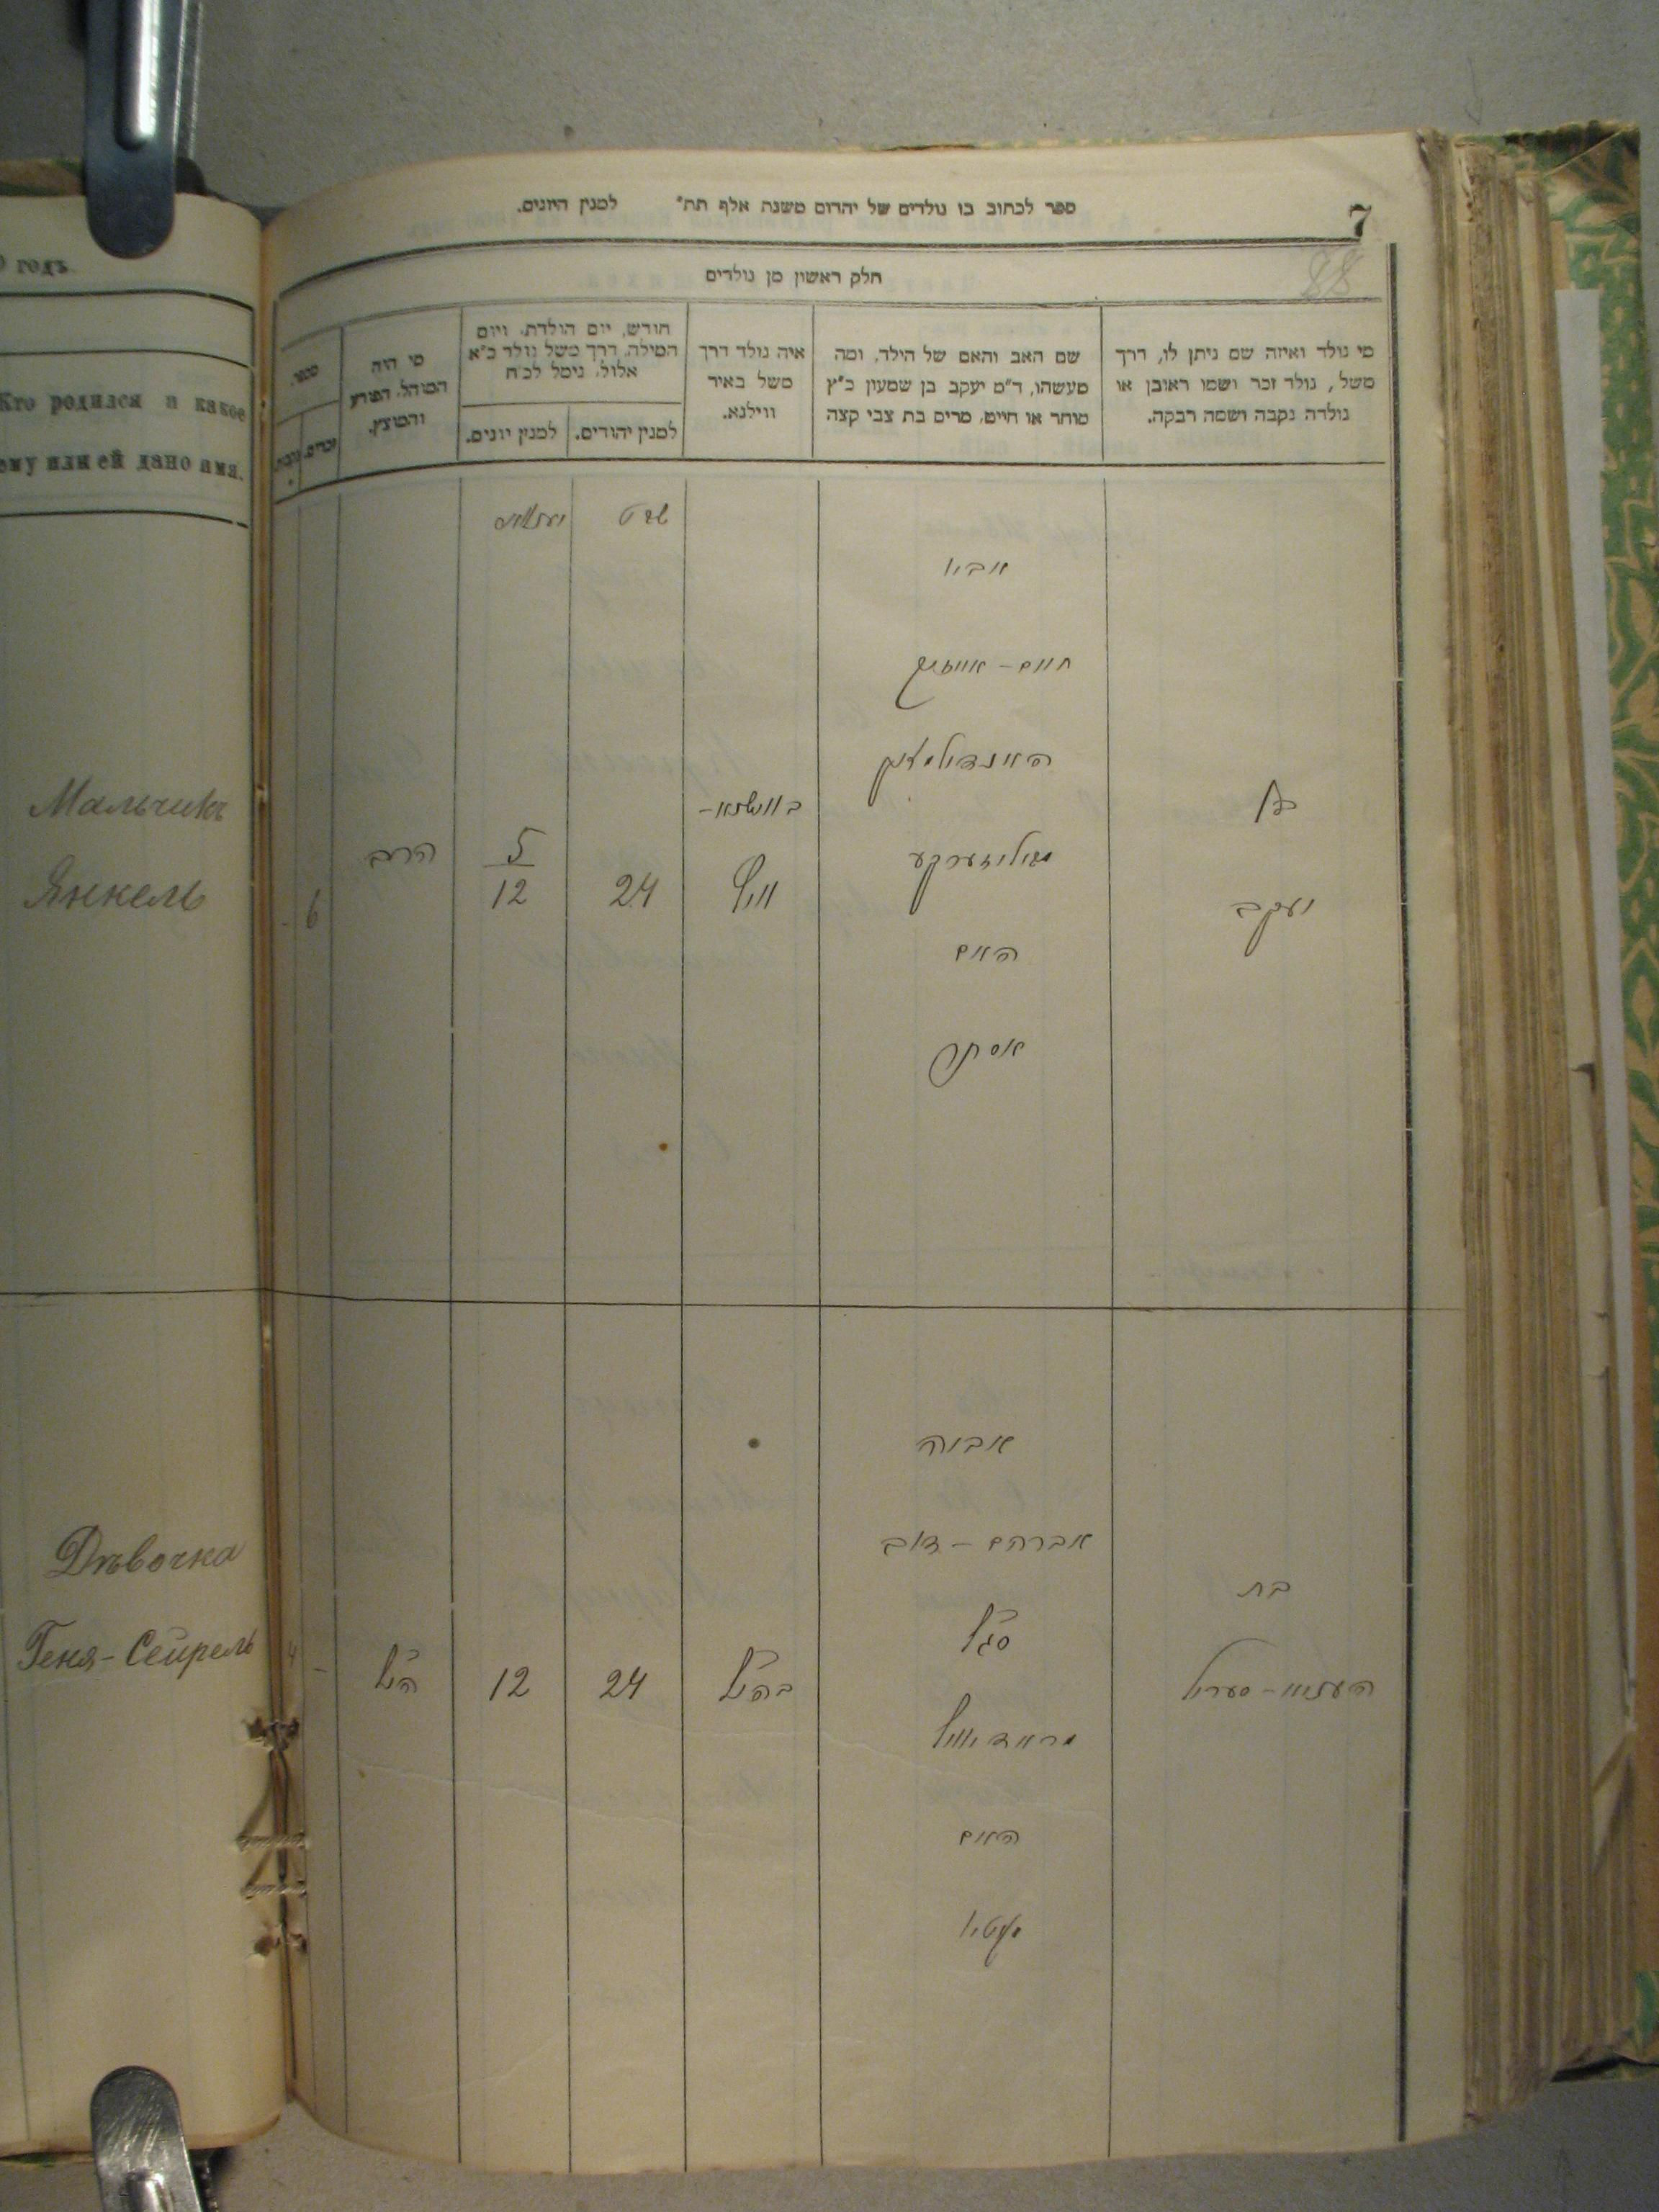 0 годъ
Кто родился и какое
ему или ей дано имя.
Мальчикъ
Янкель
Дѣвочка
Геня-Сейрель
ספר לכתוב בו נולדים של יהדום משנת אלף תת״ למנין היונים.
7
88
חלק ראשון מן נולדים
מי נולד ואיזה שם ניתן לו, דרך
משל, נולד זכר ושמו ראובן או
נולדה נקבה ושמה רבקה.
שם האב והאם של הילד, ומה
מעשהו, ד״מ יעקב בן שמעון כ״ץ
סוחר או חייט, מרים בת צבי קצה
איה נולד דרך
משל באיר
ווילנא.
חודש, יום הולדת, ויום
המילה, דרך משל נולד כ״א
אלול, נימל לכ״ח
למנין יהודים.
למנין יונים.
מי היה
המוהל, הפורע
והמוצץ.
מספר.
זכרים.
נקבות.
שבט
אביו
חיים - אייזיק
בן
יעקב
וויל
24
5
12
הרב
6
האם
אסתר
אביה
אברהם - דוב
סג״ל
בת
העניא - סעריל
בהנ״ל
24
12
הנ״ל
4
-
האם